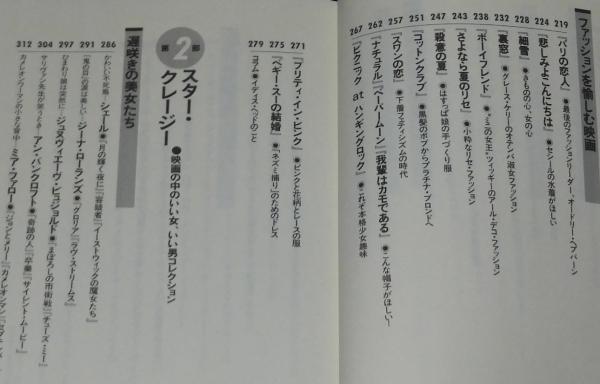 ファッションを愉しむ映画
219 『パリの恋人』●最後のファッションリーダー・オードリー・ヘプバーン
224 『悲しみよこんにちは』●セシールの水着がほしい
228 『細雪』●きものの心、女の心
232 『裏窓』●グレース・ケリーのオテンバ淑女ファッション
238 『ボーイフレンド』●"ミニの女王"ツィッギーのアール・デコ・ファッション
243 『さよなら夏のリセ』●小粋なリセ・ファッション
247 『殺意の夏』●はすっぱ娘の手づくり服
251 『コットンクラブ』●黒髪のボブからプラチナ・ブロンドへ
257 『スワンの恋』●下着フェティシズムの時代
262 『ナチュラル』『ペーパームーン』『我輩はカモである』●こんな帽子がほしい〜
267 『ピクニック at ハンギングロック』●これぞ本格少女趣味
271 『プリティ・イン・ピンク』●ピンクと花柄とレースの服
275 『ペギー・スーの結婚』●『ネズミ捕り』のためのドレス
279 コラム●イディス・ヘッドのこと
第2部
スター・クレージー●映画の中のいい女、いい男コレクション
遅咲きの美女たち
286 かわいい不死鳥・シェール●『月の輝く夜に』『容疑者』『イーストウィックの魔女たち』
291 『鬼の目』の涙は美しい・ジーナ・ローランズ●『グロリア』『ラヴ・ストリームス』
297 ひまわり娘は突然に・ジュヌヴィエーヴ・ビュジョルド●『まぼろしの市街戦』『チューズ・ミー』
304 サリヴァン先生が笑うとき・アン・バンクロフト●『奇跡の人』『卒業』『サイレント・ムービー』
312 カメレオンウーマンの小さな背中・ミア・ファロー●『ジョンとメリー』『カメレオンマン』